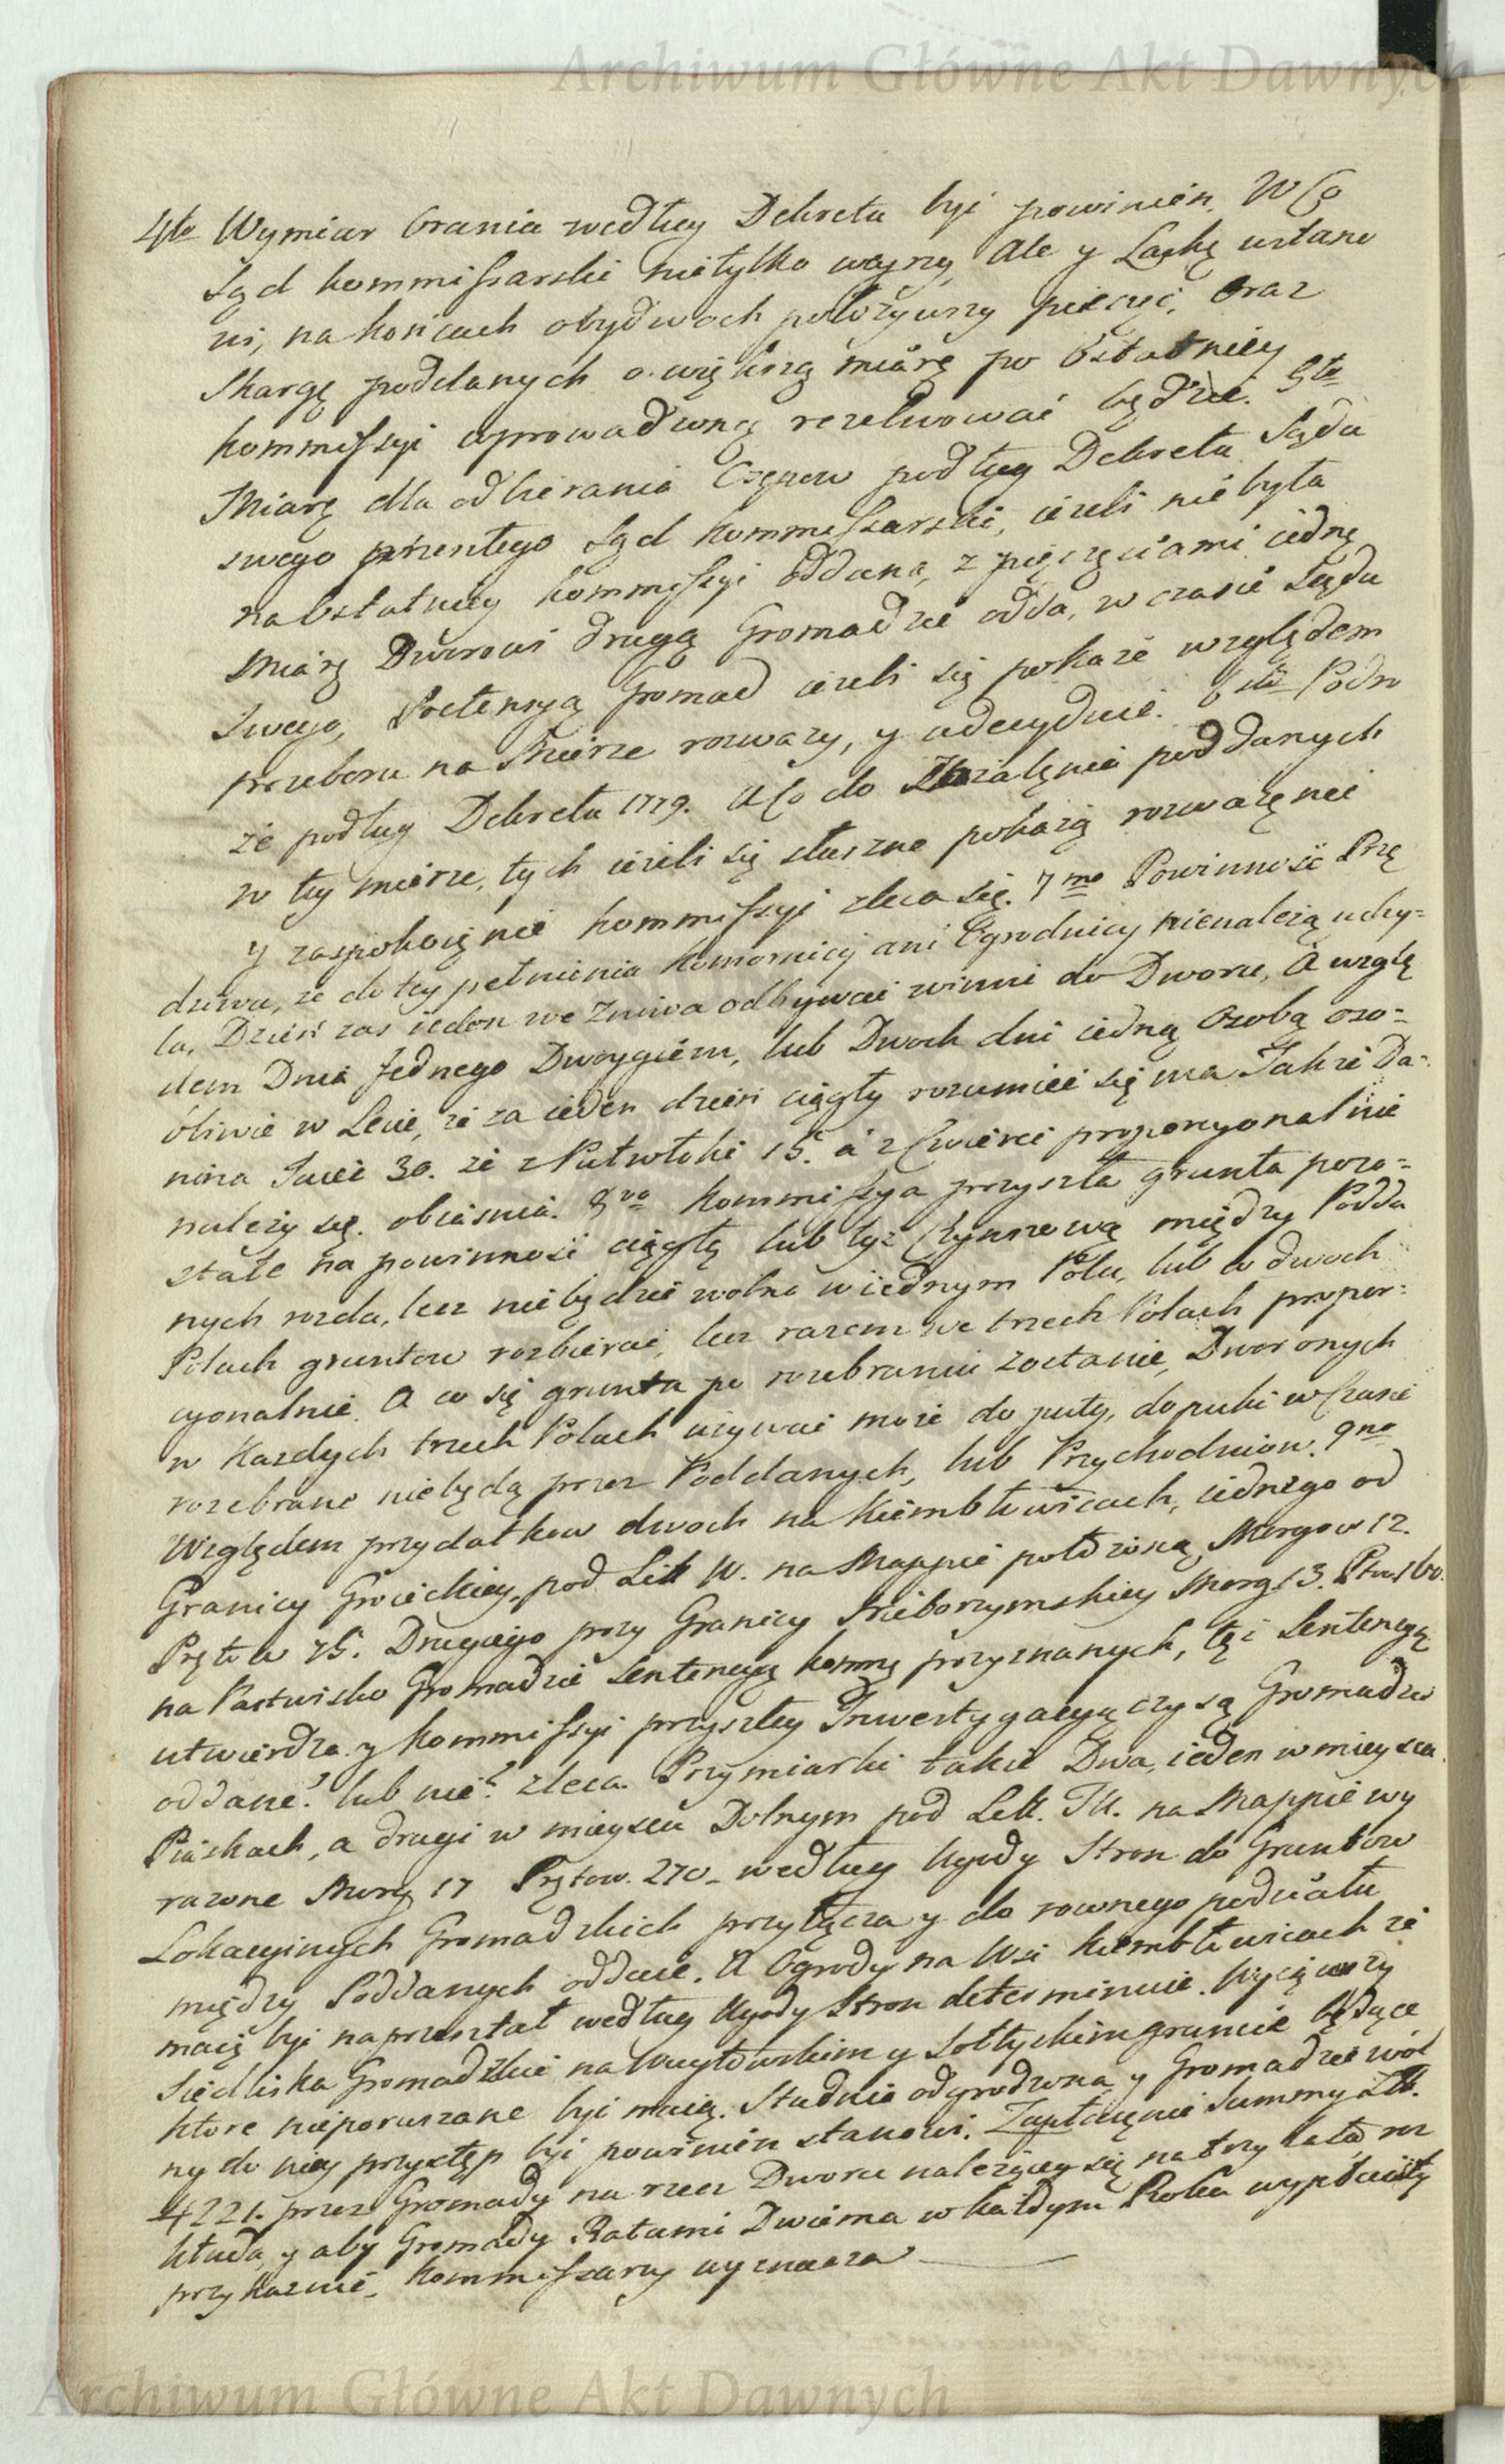 Archiwum Główne Akt Dawnych
4to Wymiar Orania według Dekretu byi powinien, W Co
Sąd kommissarski nietylko wayrzy, Ale y Laskę ustano
wi, na końcach obydwoch położywszy pieczęć, Oraz
Skargę poddanych o większą miarę po Ostatniey
kommissyi wprowadzoną rezolwować będzie. 5to
Miarę dla odbierania Czynszow podług Dekretu Sądu
swego przeszłego Sąd Kommissarski, ieżeli nie była
na Ostatniey kommissyi Oddana, z pięczęciami iedną
Miarę Dworowi drugą Gromadzie odda, w czasie Sądu
Swego, Pretensyą Gromad ieżeli się pokaże względem
przeboru na Mierze rozważy, y udecyduie. 6to Podwo
że podług Dekretu 1779. A Co do Użalęnia poddanych
w tey mierze, tych ieżeli się słuszne pokażą rozważęnie
y zaspokoięnie kommissyi zleca się. 7mo Powinność Przę
dziwa, że do tey pełnienia Komornicy ani Ogrodnicy nienależą uchy=
la, Dzień zas ieden we Zniwa odbywać winni do Dworu, A wzglę
dem Dnia Jednego Dwoygiem, lub Dwoch dni iedną Osobą oso=
bliwie w Lecie, że za ieden dzień ciągły rozumieć się ma. Takze Da=
nina Jaiec 30. że z Pułwłoki 15. a z Cwierci proporcyonalnie
należy się obiasnia. 8vo Kommissya przyszła grunta pozo=
stałe na powinność ciągłą lub też Czynszową między Podda
nych rozda, lecz niebędzie wolno w iednym Polu, lub w dwoch
Polach gruntow rozbierać, lecz razem we trzech Polach propor=
cyonalnie. A co się gruntu po rozebraniu zostanie, Dwor onych
w Kazdych trzech Polach używać może do puty, dopuki w Czasie
rozebrane niebędą przez Poddanych, lub Przychodniow. 9no
Względem przydatkow dwoch na Kiembłowicach, iednego od
Granicy Grocickiey, pod Litt W. na Mappie położoną Morgow 12.
Prętow 75. Drugiego przy Granicy Srieborzymskiey Morg. 13. Prętow 160.
na Pastwisko Gromadzie Sentencyą komną przyznanych, tęż Sentencyą
utwierdza y Kommissyi przyszłey Inwestygacyą czy są Gromadzie
oddane? lub nie? zleca. Przymiarki takie Dwa, ieden w mieyscu
Piaskach, a drugi w mieyscu Dolnym pod Litt. TU. na Mappie wy
razone Morg 17 Prętow. 270_ według Ugody Stron do Gruntow
Lokacyinych Gromadzkich przyłącza y do rownego podziału
między Poddanych oddaie. A Ogrody na Wsi Kiembłowicach ze
maią byi naprzestał według Ugody Stron determinuie. Wyciąwszy
Siedliska Gromadzkie na Wuytowskim y Sołtyskim gruncie będące
ktore nieporuszane byi maią. Studnia odgrodzona, y Gromadzie wol
ny do niey przystęp byi powinien stanowi. Zapłacęnie Summy Złł.
4221. przez Gromady na rzecz Dworu należącey się na trzy lata roz
kłada, y aby Gromady Ratami Dwiema w każdym Roku wypłaciły
przykazuie, Kommissarzy wyznacza
Archiwum Główne Akt Dawnych